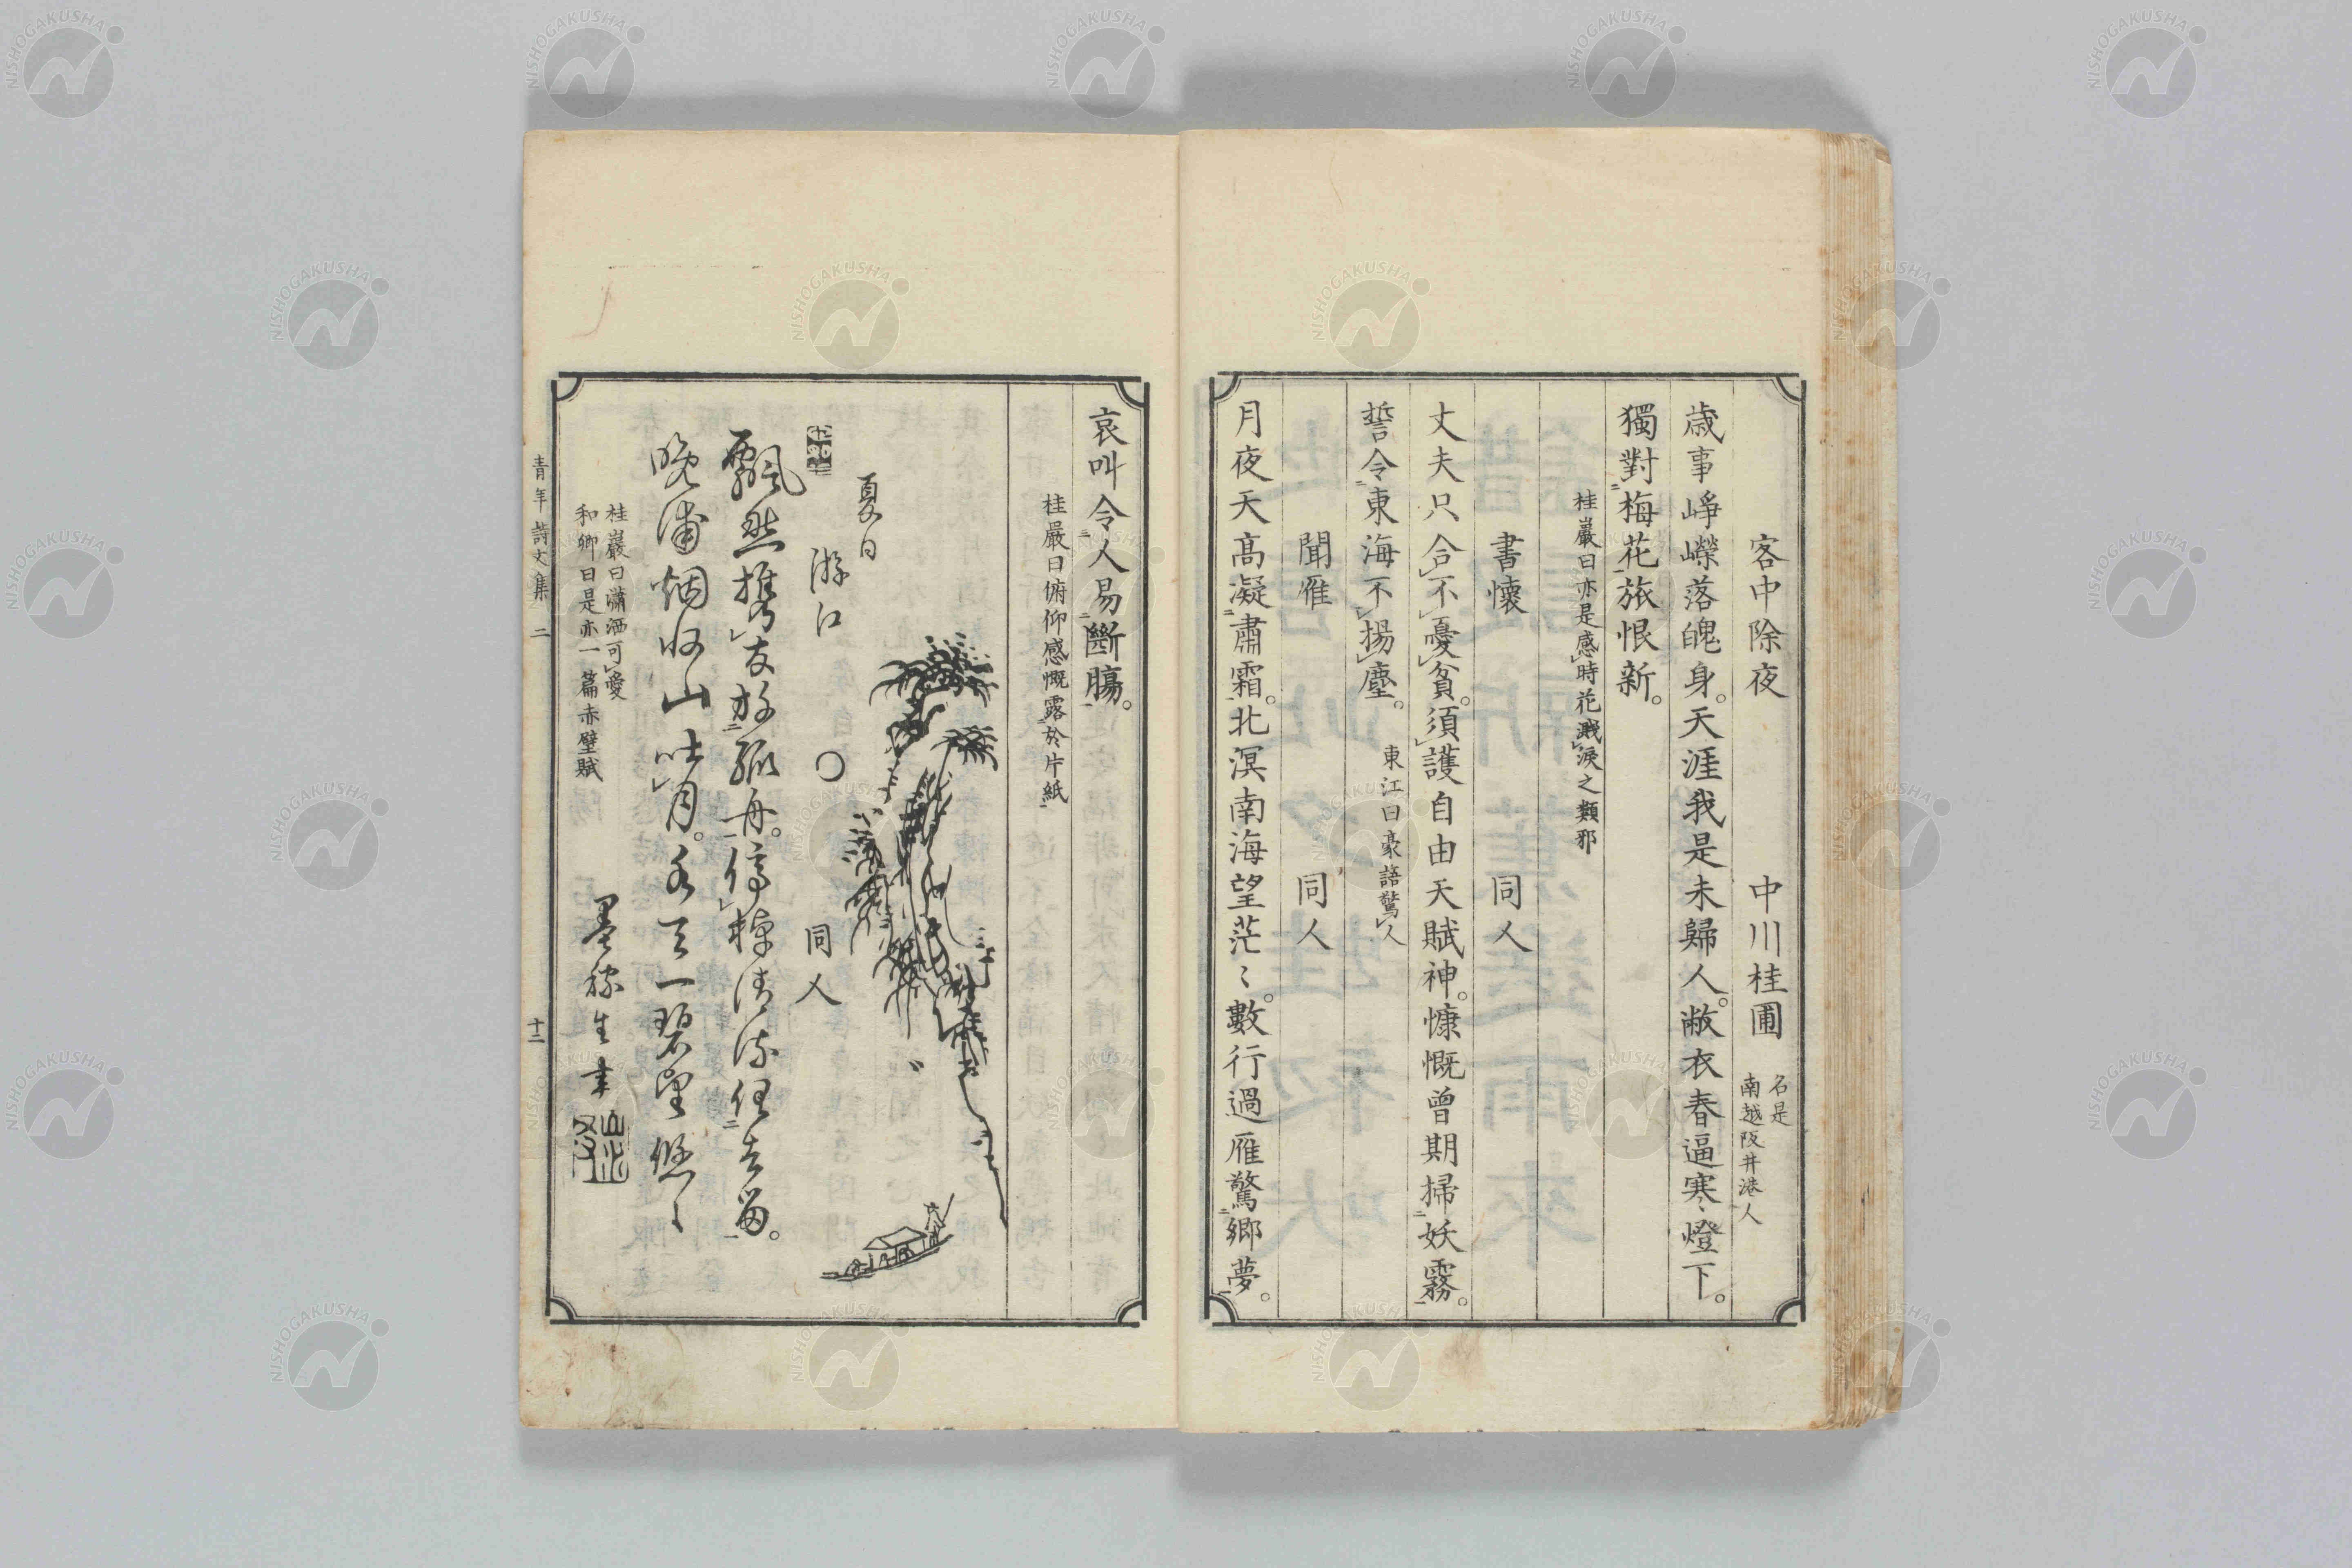 客中除夜 中川桂圃 名是
南越阪井港人
歳事崢嶸落魄身。天涯我是未歸人。敝衣春逼寒燈下。
獨對梅花旅恨新。
桂巖曰亦是感時花濺淚之類邪
書懷 同人
丈夫只合不憂貧。須護自由天賦神。慷慨曾期掃妖霧。
誓令東海不揚塵。 東江曰豪語驚人
聞雁 同人
月夜天高凝肅霜。北溟南海望茫〻。數行過雁驚鄉夢。
哀叫令人易斷膓。
桂嚴曰俯仰感慨露於片紙
夏日
游江 〇 同人
飄然携友放孤舟。停棹清流任去留。
晩浦烟收山吐月。水天一碧望悠〻
墨稼生書
桂巖曰瀟洒可愛
和卿曰是亦一篇赤壁賦
青年詩文集 二 十二
NISHOGAKUSHA